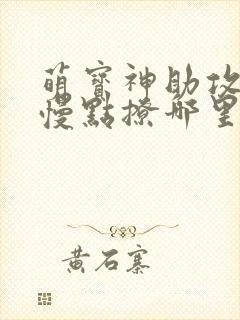 萌寶神助攻
慢點撩那里
黃石寨